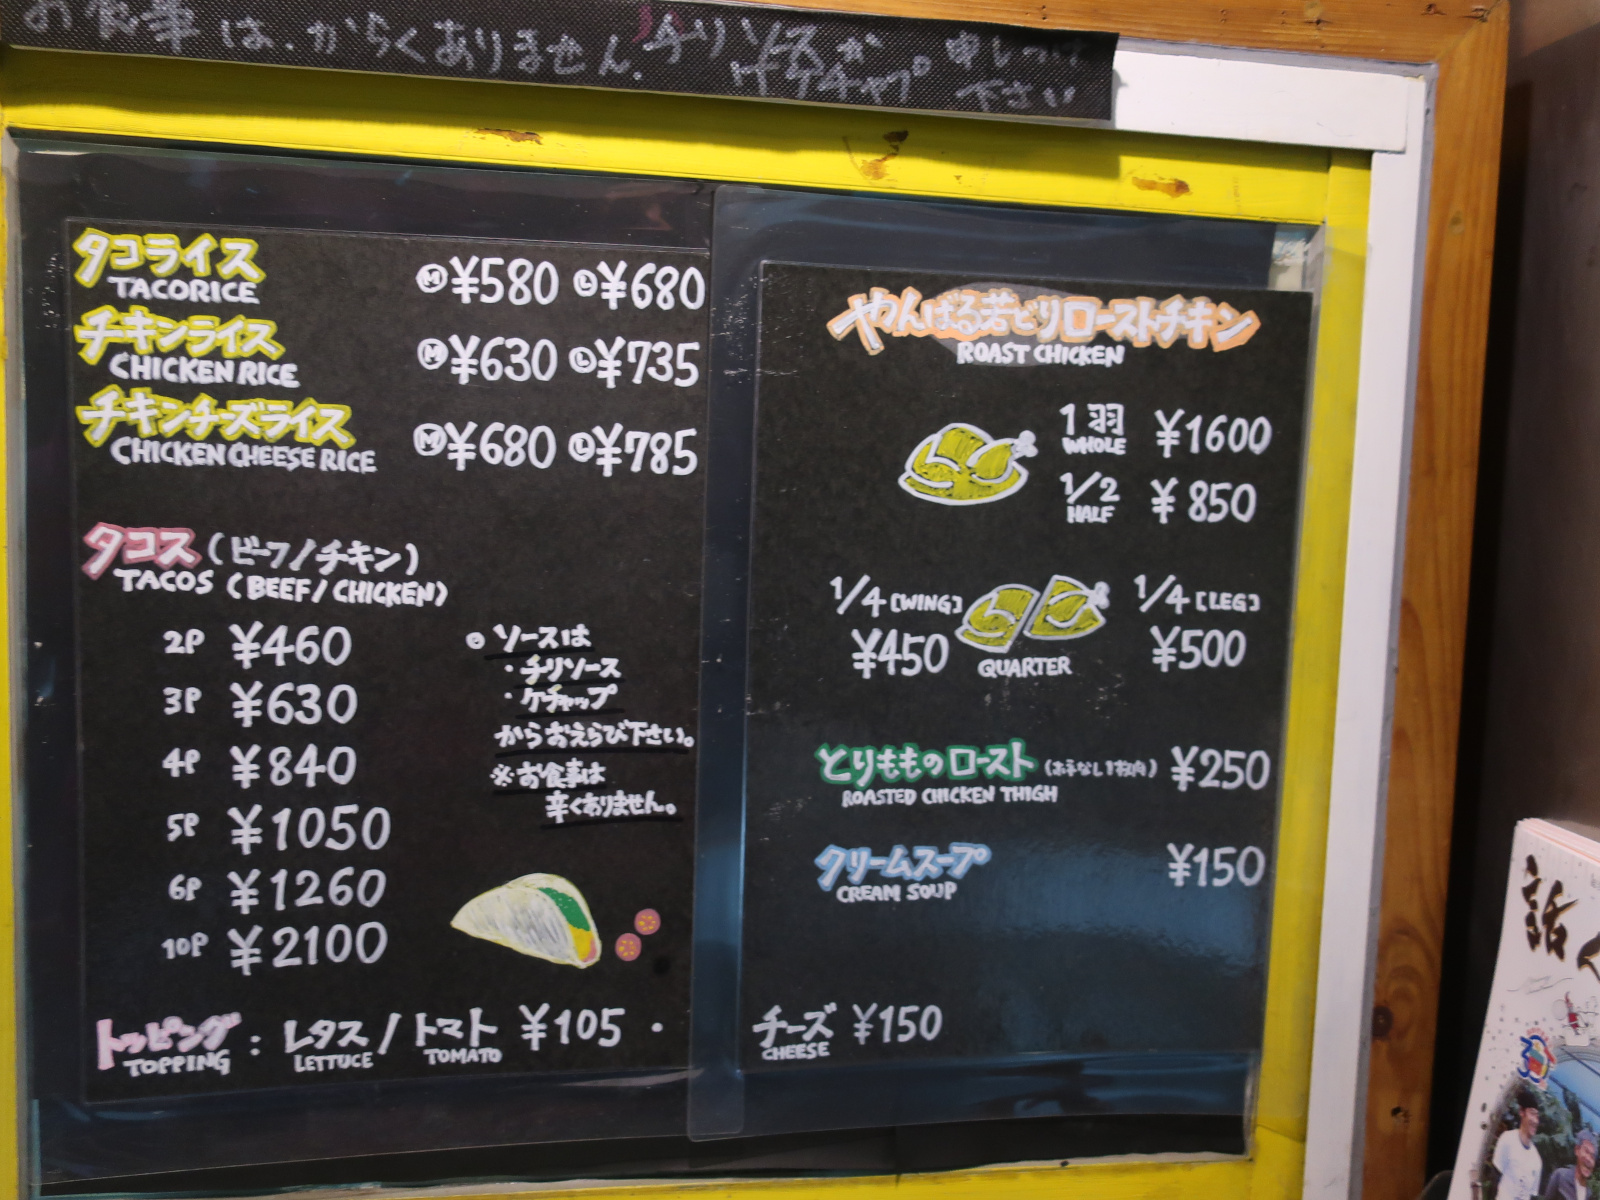 お食事は、からくありません。チリソースか
ケチャップ
申しつけ
下さい
タコライス
TACORICE
Ⓜ¥580 Ⓛ¥680
チキンライス
CHICKEN RICE
Ⓜ¥630 Ⓛ¥735
チキンチーズライス
CHICKEN CHEESE RICE
Ⓜ¥680 Ⓛ¥785
タコス(ビーフ/チキン)
TACOS (BEEF/CHICKEN)
2P ¥460
3P ¥630
4P ¥840
5P ¥1050
6P ¥1260
10P ¥2100
ソースは
・チリソース
・ケチャップ
からおえらび下さい。
※お食事は
辛くありません。
トッピング : レタス / トマト ¥105 ・
TOPPING LETTUCE TOMATO
やんばる若どりローストチキン
ROAST CHICKEN
1羽 ¥1600
WHOLE
1/2 ¥850
HALF
1/4 [WING] 1/4 [LEG]
¥450 QUARTER ¥500
とりもものロースト (ホネなし1枚肉) ¥250
ROASTED CHICKEN THIGH
クリームスープ ¥150
CREAM SOUP
チーズ ¥150
CHEESE
話
30